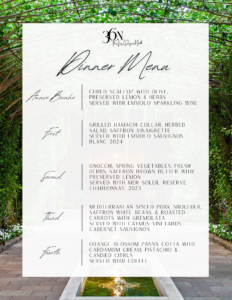 36N
Dinner Menu
Amuse Bouche
CURED SCALLOP WITH OLIVE,
PRESERVED LEMON & HERBS
SERVED WITH EMMOLO SPARKLING WINE
First
GRILLED HAMACHI COLLAR, HERBED
SALAD, SAFFRON VINAIGRETTE
SERVED WITH EMMOLO SAUVIGNON
BLANC 2024
Second
GNOCCHI, SPRING VEGETABLES, FRESH
HERBS, SAFFRON BROWN BUTTER WITH
PRESERVED LEMON
SERVED WITH MER SOLEIL RESERVE
CHARDONNAY, 2023
Third
MEDITERRANEAN SPICED PORK SHOULDER,
SAFFRON WHITE BEANS, & ROASTED
CARROTS WITH GREMOLATA
SERVED WITH CAYMUS VINEYARDS
CABERNET SAUVIGNON
Fourth
ORANGE BLOSSOM PANNA COTTA WITH
CARDAMOM CREAM, PISTACHIO &
CANDIED CITRUS
SERVED WITH COFFEE